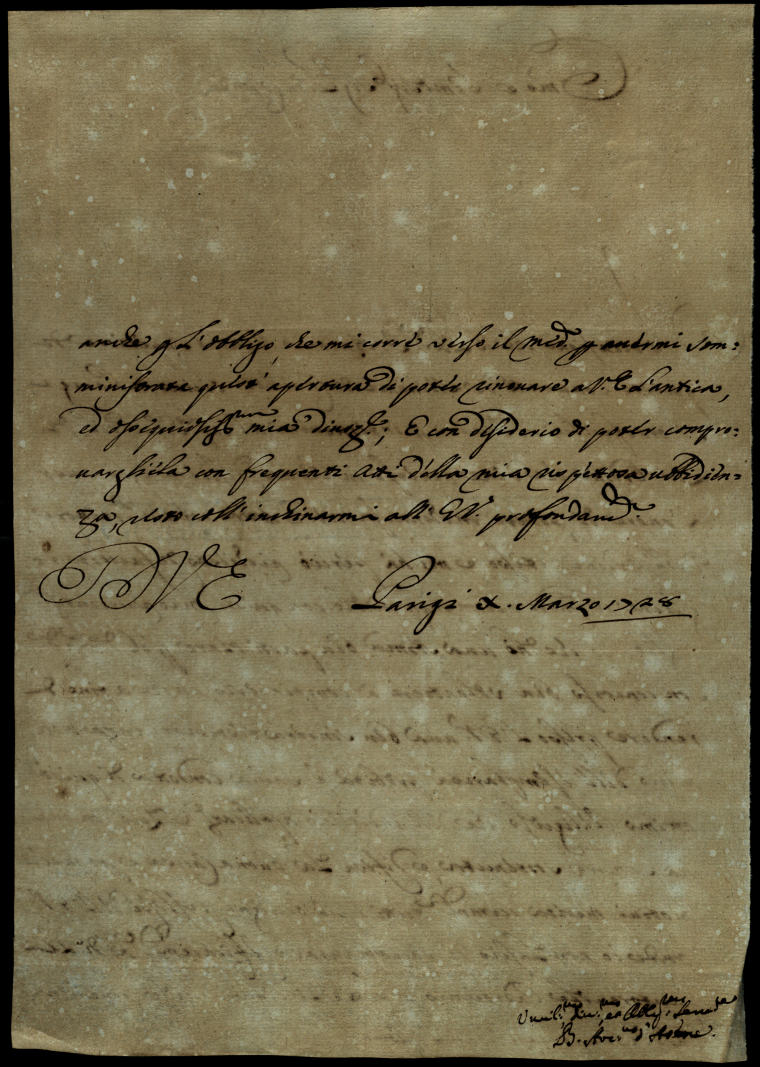 anche p l'obbligo, che mi corre verso il med.o p avermi som=
ministrata questa apertura di poter rinovare a V.E. l'antica,
ed ossequiosiss.ma mia divoz.e; E con desiderio di poter compro=
vargliela con frequenti atti della mia rispettosa ubbidien=
za, resto coll'inchinarmi all'E.V. profondam.te
D V E
Parigi Marzo 1728
Umil.mo div.mo ed obblig.mo Serv.re
B. Arc.vo d'Atene.